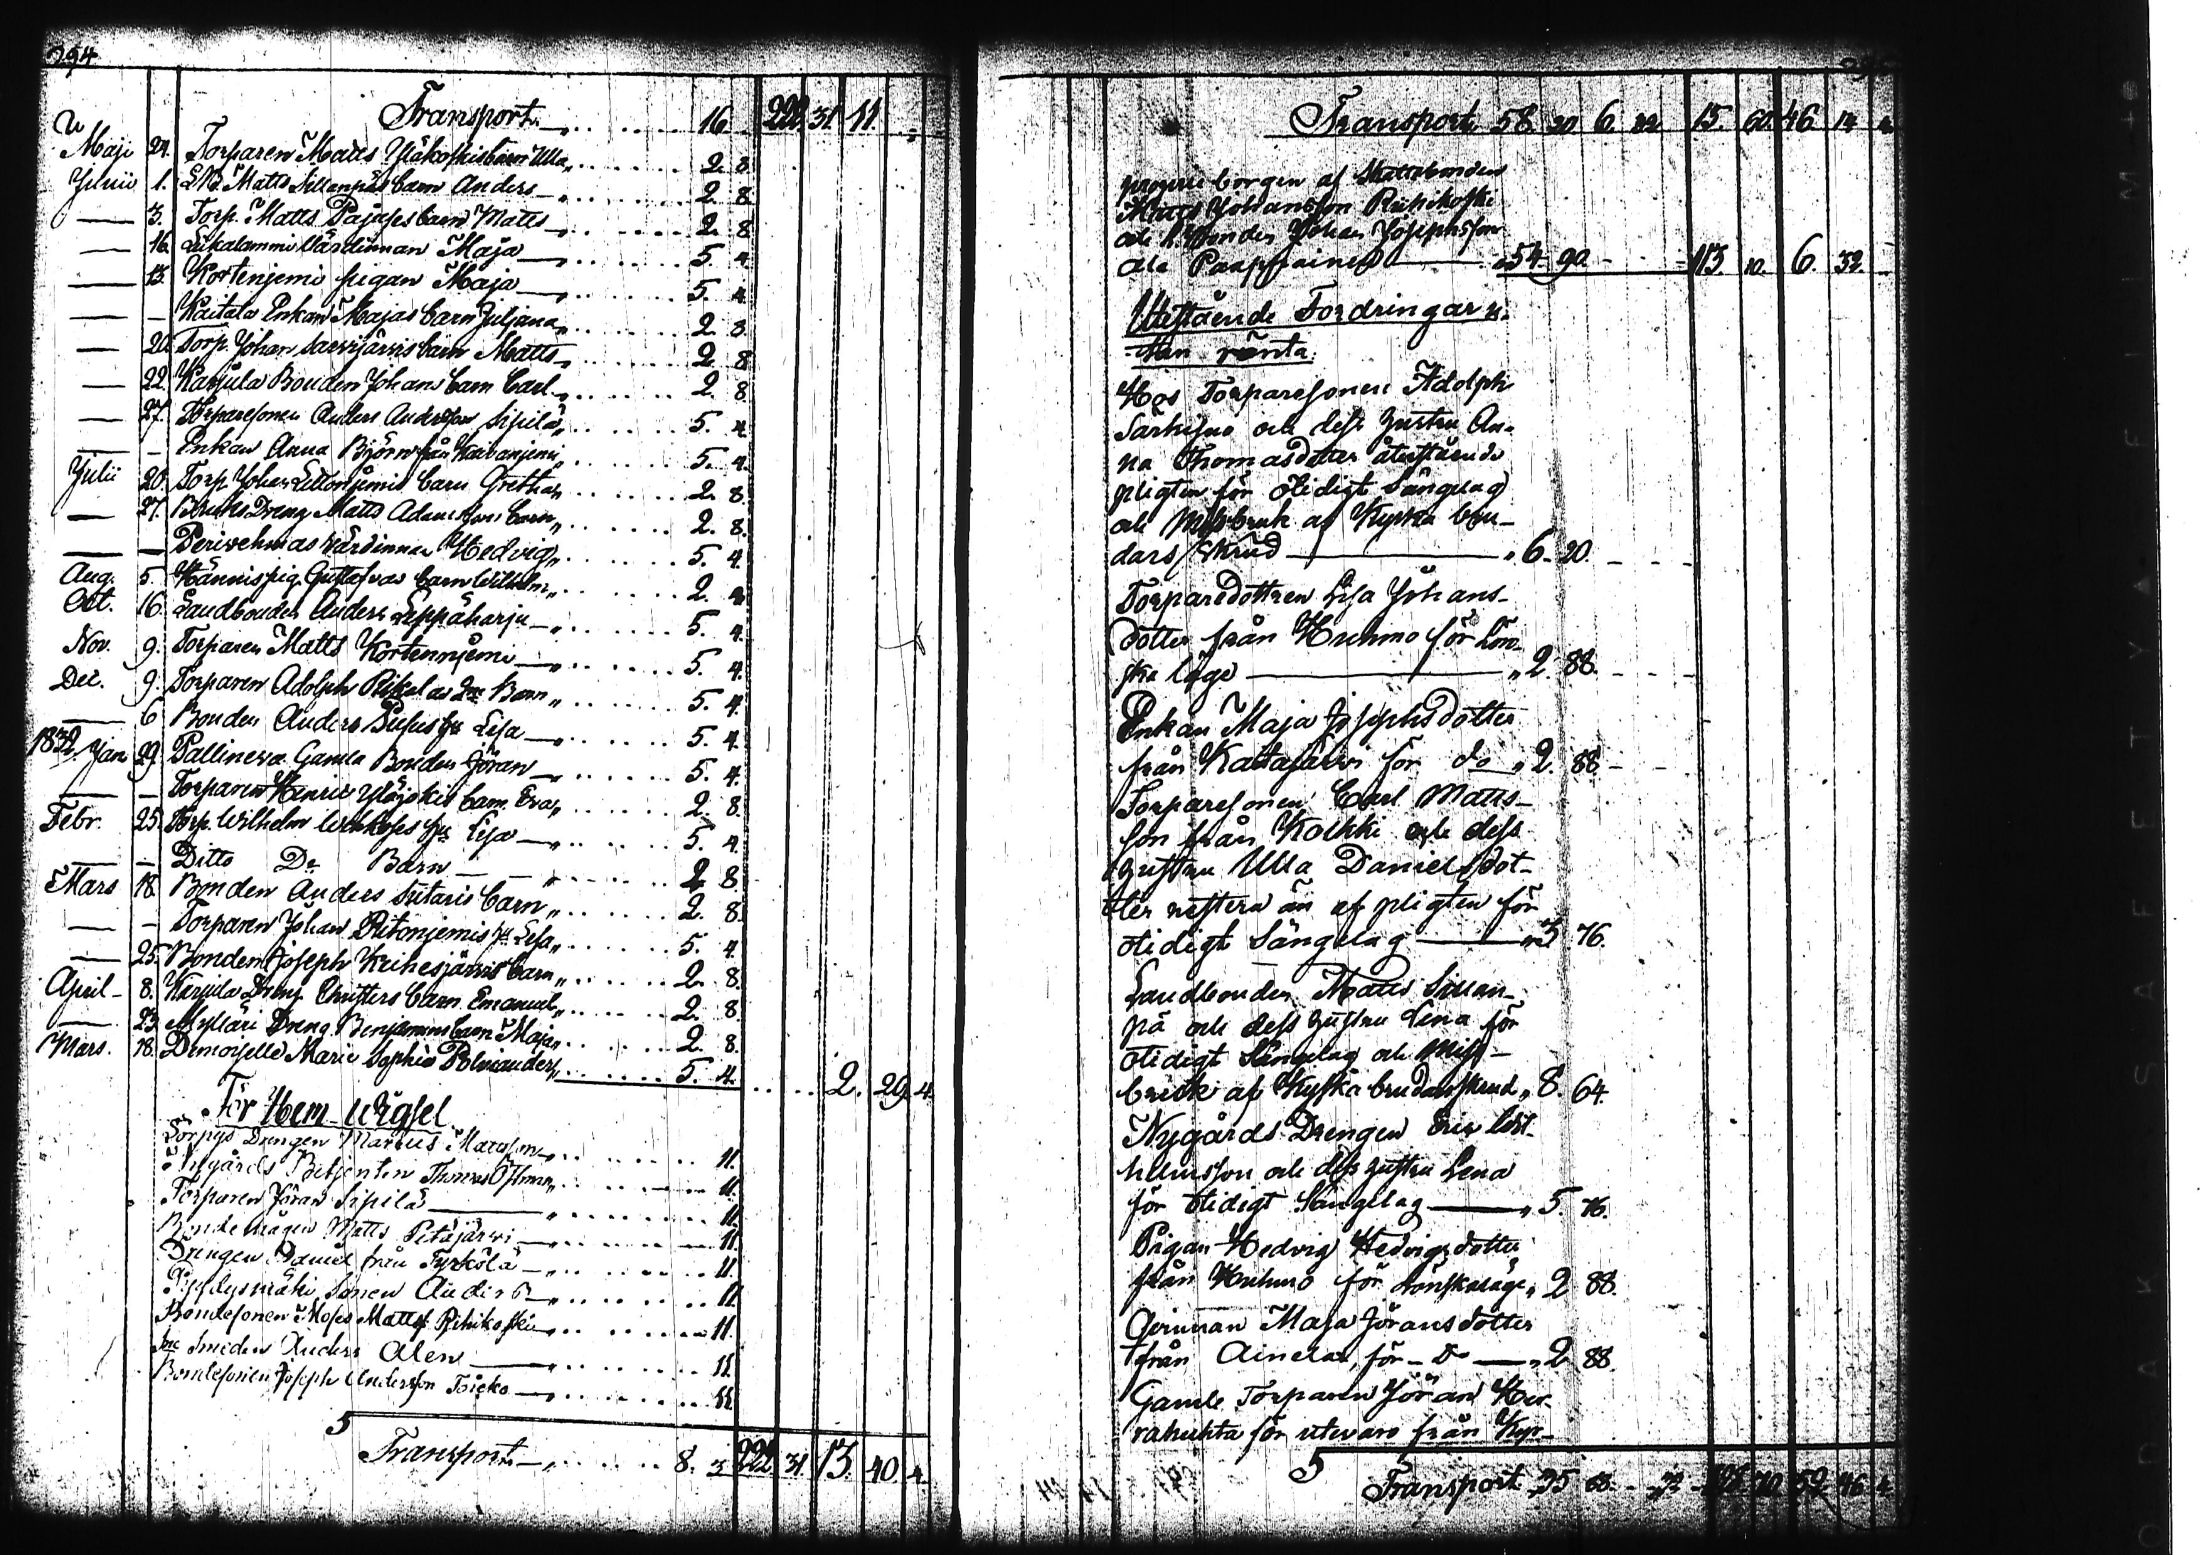 294
Transport 16. 222. 31. 11.
Maji 24. Torparen Matts Yläkoskis barn Ulla 2. 8.
Junii 1. LB. Matts Sillanpääs barn Anders 2. 8.
— 3. Torp. Matts Pajuses barn Matts 2. 8
— 16. Värdinnan Maja 5. 4.
— 13. Kortenjemi pigan Maja 5. 4.
— — Kaitala Enkan Majas barn Juljana 2. 8.
— 20. Torp. Johan Saarijärvis barn Matts 2. 8.
— 22. Karjula Bonden Johans barn Carl 2. 8.
— 27. Torparesonen Anders Andersson Sipilä 5. 4.
— — Enkan Anna Björn från 5. 4.
Julii 20. Torp Johan barn Gretha 2. 8.
— 27. Bruks Dreng Matts Adamssons barn 2. 8.
— — Perivehmas värdinna Hedvig 5. 4.
Aug. 5. Hännis pig. Gustafvas barn Wilhelm 2. 8.
Oct. 16. Landbonden Anders Leppäharju 5. 4.
Nov. 9. Torparen Matts Kortennjemi 5. 4.
Dec. 9. Torparen Adolph Rikalas 2ne Barn 5. 4.
— 6 Bonden Anders hu Lisa 5. 4.
1832. Jan 29. Pallineva Gamla Bonden Jöran 5. 4.
— — Torparen Henric Yläjokis barn Eva 2. 8.
Febr. 25. Torp. Wilhelm hu Lisa 5. 4.
— — Ditto Do Barn 2. 8
Mars 18. Bonden Anders Sutaris barn 2. 8.
— — Torparen Johan Ritonjemis hu Lisa 5. 4
— 25. Bonden Joseph barn 2. 8.
April 8. Karjula Dreng Christers barn Emanuel 2. 8.
— 23. Mylläri Dreng Benjamins barn Maja 2. 8.
Mars. 18. Demoiselle Maria Sophia 5. 4. 2. 29. 4.
För Hem-vigsel
Drengen Marcus Matsson 11.
Nygårds Betjenten Thomas Östman 11.
Torparen Jöran Sipilä 11.
Bonde mågen Matts Petäjärvi 11.
Drengen Daniel från Tyrkölä 11.
Sonen Anders 11.
Bondesonen Moses Mattss. Rihikoski 11.
Smeden Anders Alen 11.
Bondesonen Joseph Andersson 11.
5
Transport 8. 3 222. 31 13. 40. 4.
Transport 58. 20 6. 15. 60. 46. 14
proprie borgen af Skattebonden
Matts Johansson Rihikoski
och Bonden Johan Josephsson
54. 90. 113. 10. 6. 32
Utestående Fordringar u-
tan ränta.
Hos Torparesonen Adolph
och dess hustru An-
na Thomasdotter återstående
pligten för otidigt Sängelag
och Missbruk af Kyska bru-
darsskrud 6. 20.
Torparedottren Lisa Johans-
dotter från Huhmo för Lön-
ska läge 2. 88.
Enkan Maja Josephsdotter
från Katajärvi för do 2. 88
Torparesonen Carl Matts-
son från Kolkki och dess
hustru Ulla Danielsdot-
ter restera än af pligten för
otidigt Sängelag 3 76.
Landbonden Matts Sillan-
pä och dess hustru Lena för
otidigt Sängelag och Miss-
bruk af Kyska brudarsskrud 8. 64.
Nygårds Drengen Eric Wil-
helmsson och dess hustru Lena
för otidigt Sängelag 5. 76.
Pigan Hedvig Hedvigsdotter
från Huhmo för Lönskaläge 2 88.
Qvinnan Maja Jöransdotter
från Ainelax för Do 2 88.
Gamle Torparen Jöran Har-
rahuhta för utevaro från Kyr-
5
Transport 35 68. 70 52. 46 4